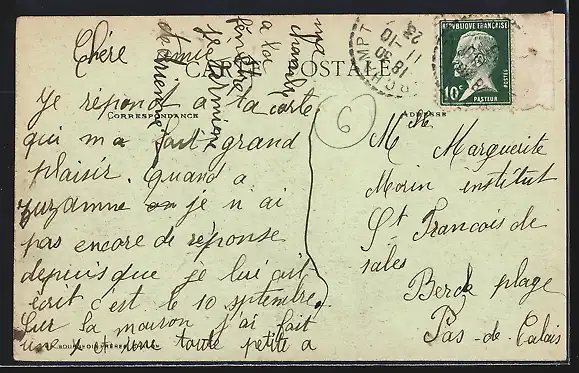 Chère Amie
CARTE POSTALE
CORRESPONDANCE
ADRESSE
RÉPUBLIQUE FRANÇAISE
10c
POSTES
PASTEUR
18 30
11 -10
23
6
Je répond a ta carte
qui m a fait grand
plaisir. Quand a
zuzanne je n ai
pas encore de réponse
depuis que je lui ait
écrit c'est le 10 sptembre.
Sur la maison j'ai fait
une x et une toute petite a
ma
chambre
a la
fenêtre
je termine
Mlle Marguerite
Morin institut
St Francois de
sales
Berck plage
Pas-de-Calais